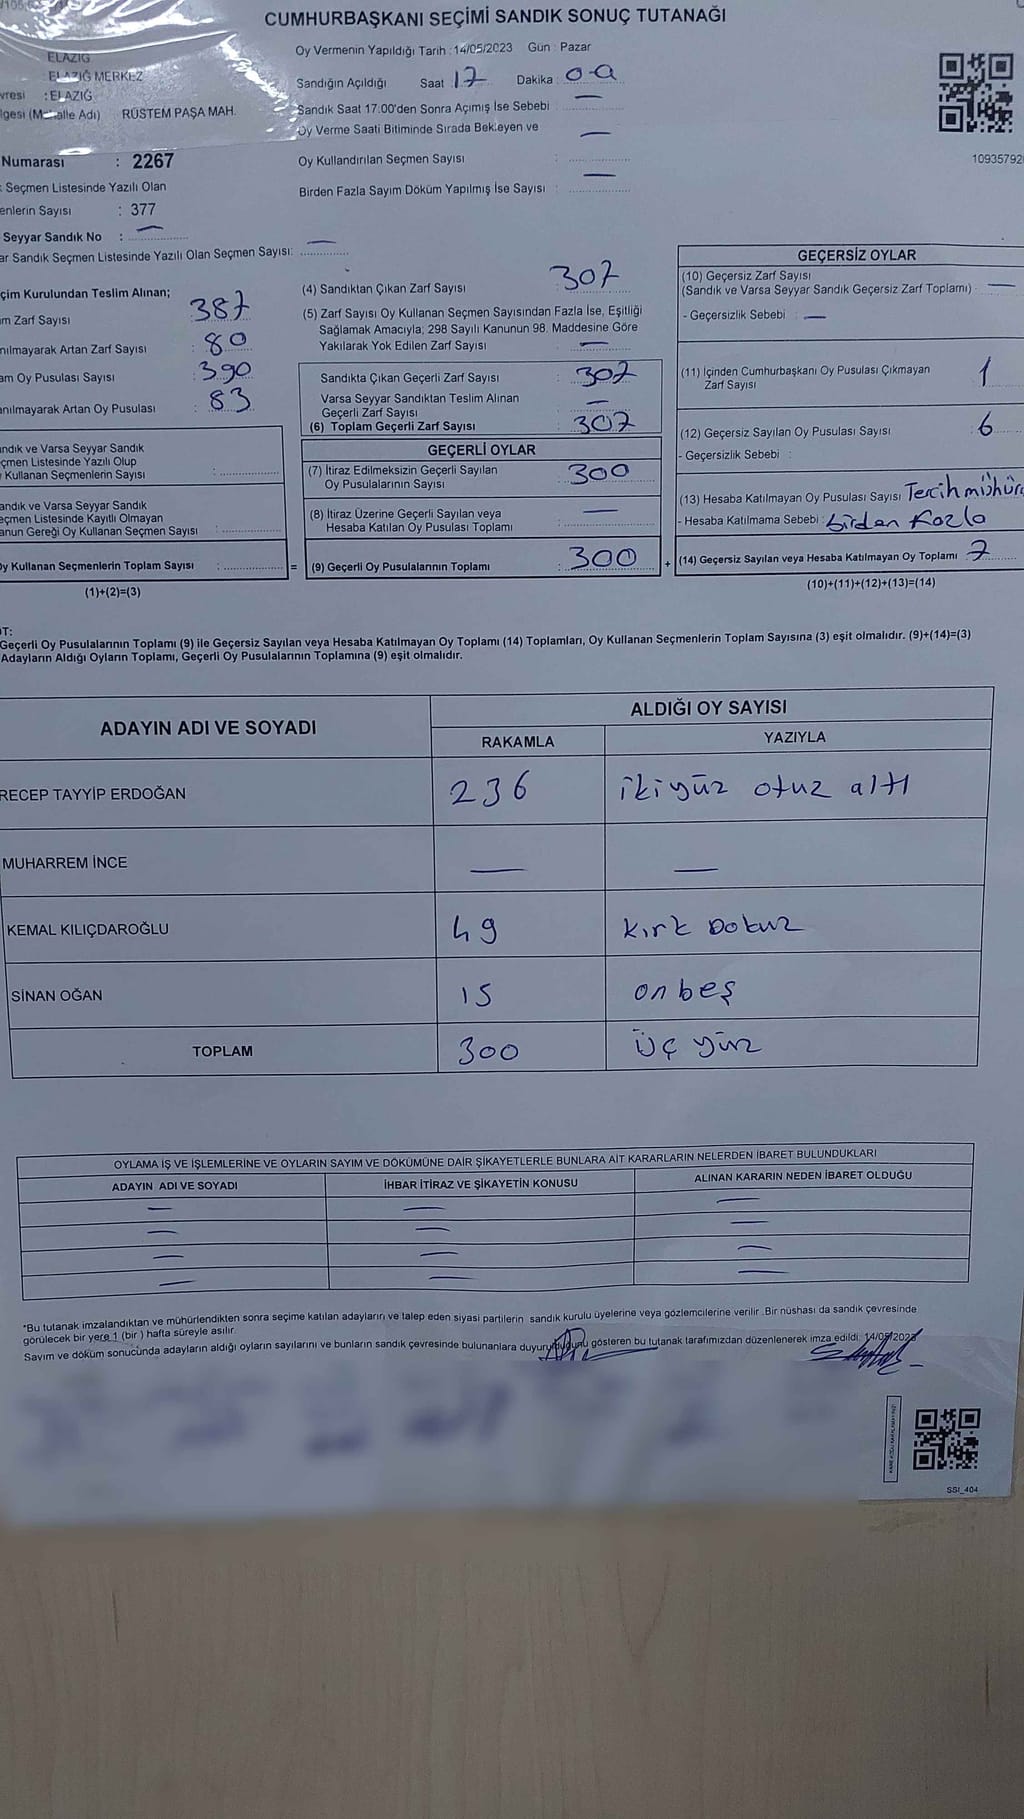 CUMHURBAŞKANI SEÇİMİ SANDIK SONUÇ TUTANAĞI
ELAZIĞ
: ELAZIĞ MERKEZ
vresi : ELAZIĞ
RÜSTEM PAŞA MAH.
Oy Vermenin Yapıldığı Tarih : 14/05/2023 Gün : Pazar
Sandığın Açıldığı Saat 17 Dakika :
Sandık Saat 17:00'den Sonra Açımış İse Sebebi
Oy Verme Saati Bitiminde Sırada Bekleyen ve
Oy Kullandırılan Seçmen Sayısı :
Birden Fazla Sayım Döküm Yapılmış İse Sayısı :
10935792
Numarası : 2267
Seçmen Listesinde Yazılı Olan
enlerin Sayısı : 377
Seyyar Sandık No : —
ar Sandık Seçmen Listesinde Yazılı Olan Seçmen Sayısı: —
çim Kurulundan Teslim Alınan;
m Zarf Sayısı : 387
nılmayarak Artan Zarf Sayısı : 80
am Oy Pusulası Sayısı : 390
anılmayarak Artan Oy Pusulası : 83
andık ve Varsa Seyyar Sandık
çmen Listesinde Yazılı Olup
Kullanan Seçmenlerin Sayısı :
andık ve Varsa Seyyar Sandık
eçmen Listesinde Kayıtlı Olmayan
anun Gereği Oy Kullanan Seçmen Sayısı :
Oy Kullanan Seçmenlerin Toplam Sayısı : =
(1)+(2)=(3)
(4) Sandıktan Çıkan Zarf Sayısı 307
(5) Zarf Sayısı Oy Kullanan Seçmen Sayısından Fazla İse, Eşitliği
Sağlamak Amacıyla; 298 Sayılı Kanunun 98. Maddesine Göre
Yakılarak Yok Edilen Zarf Sayısı : —
Sandıkta Çıkan Geçerli Zarf Sayısı : 307
Varsa Seyyar Sandıktan Teslim Alınan
Geçerli Zarf Sayısı : —
(6) Toplam Geçerli Zarf Sayısı : 307
GEÇERLİ OYLAR
(7) İtiraz Edilmeksizin Geçerli Sayılan
Oy Pusulalarının Sayısı : 300
(8) İtiraz Üzerine Geçerli Sayılan veya
Hesaba Katılan Oy Pusulası Toplamı : —
(9) Geçerli Oy Pusulalarının Toplamı : 300 +
GEÇERSİZ OYLAR
(10) Geçersiz Zarf Sayısı
(Sandık ve Varsa Seyyar Sandık Geçersiz Zarf Toplamı) : —
- Geçersizlik Sebebi : —
(11) İçinden Cumhurbaşkanı Oy Pusulası Çıkmayan
Zarf Sayısı : 1
(12) Geçersiz Sayılan Oy Pusulası Sayısı : 6
- Geçersizlik Sebebi :
(13) Hesaba Katılmayan Oy Pusulası Sayısı Tercih mühür
- Hesaba Katılmama Sebebi : birden
(14) Geçersiz Sayılan veya Hesaba Katılmayan Oy Toplamı 7
(10)+(11)+(12)+(13)=(14)
OT:
Geçerli Oy Pusulalarının Toplamı (9) ile Geçersiz Sayılan veya Hesaba Katılmayan Oy Toplamı (14) Toplamları, Oy Kullanan Seçmenlerin Toplam Sayısına (3) eşit olmalıdır. (9)+(14)=(3)
Adayların Aldığı Oyların Toplamı, Geçerli Oy Pusulalarının Toplamına (9) eşit olmalıdır.
ADAYIN ADI VE SOYADI
ALDIĞI OY SAYISI
RAKAMLA YAZIYLA
RECEP TAYYİP ERDOĞAN 236 ikiyüz otuz altı
MUHARREM İNCE — —
KEMAL KILIÇDAROĞLU 49 kırk Dokuz
SİNAN OĞAN 15 onbeş
TOPLAM 300 üç yüz
OYLAMA İŞ VE İŞLEMLERİNE VE OYLARIN SAYIM VE DÖKÜMÜNE DAİR ŞİKAYETLERLE BUNLARA AİT KARARLARIN NELERDEN İBARET BULUNDUKLARI
ADAYIN ADI VE SOYADI İHBAR İTİRAZ VE ŞİKAYETİN KONUSU ALINAN KARARIN NEDEN İBARET OLDUĞU
— — —
— — —
— — —
— — —
*Bu tutanak imzalandıktan ve mühürlendikten sonra seçime katılan adayların ve talep eden siyasi partilerin sandık kurulu üyelerine veya gözlemcilerine verilir .Bir nüshası da sandık çevresinde
görülecek bir yere 1 (bir ) hafta süreyle asılır.
Sayım ve döküm sonucunda adayların aldığı oyların sayılarını ve bunların sandık çevresinde bulunanlara duyurulduğunu gösteren bu tutanak tarafımızdan düzenlenerek imza edildi. 14/05/2023
SSI_404